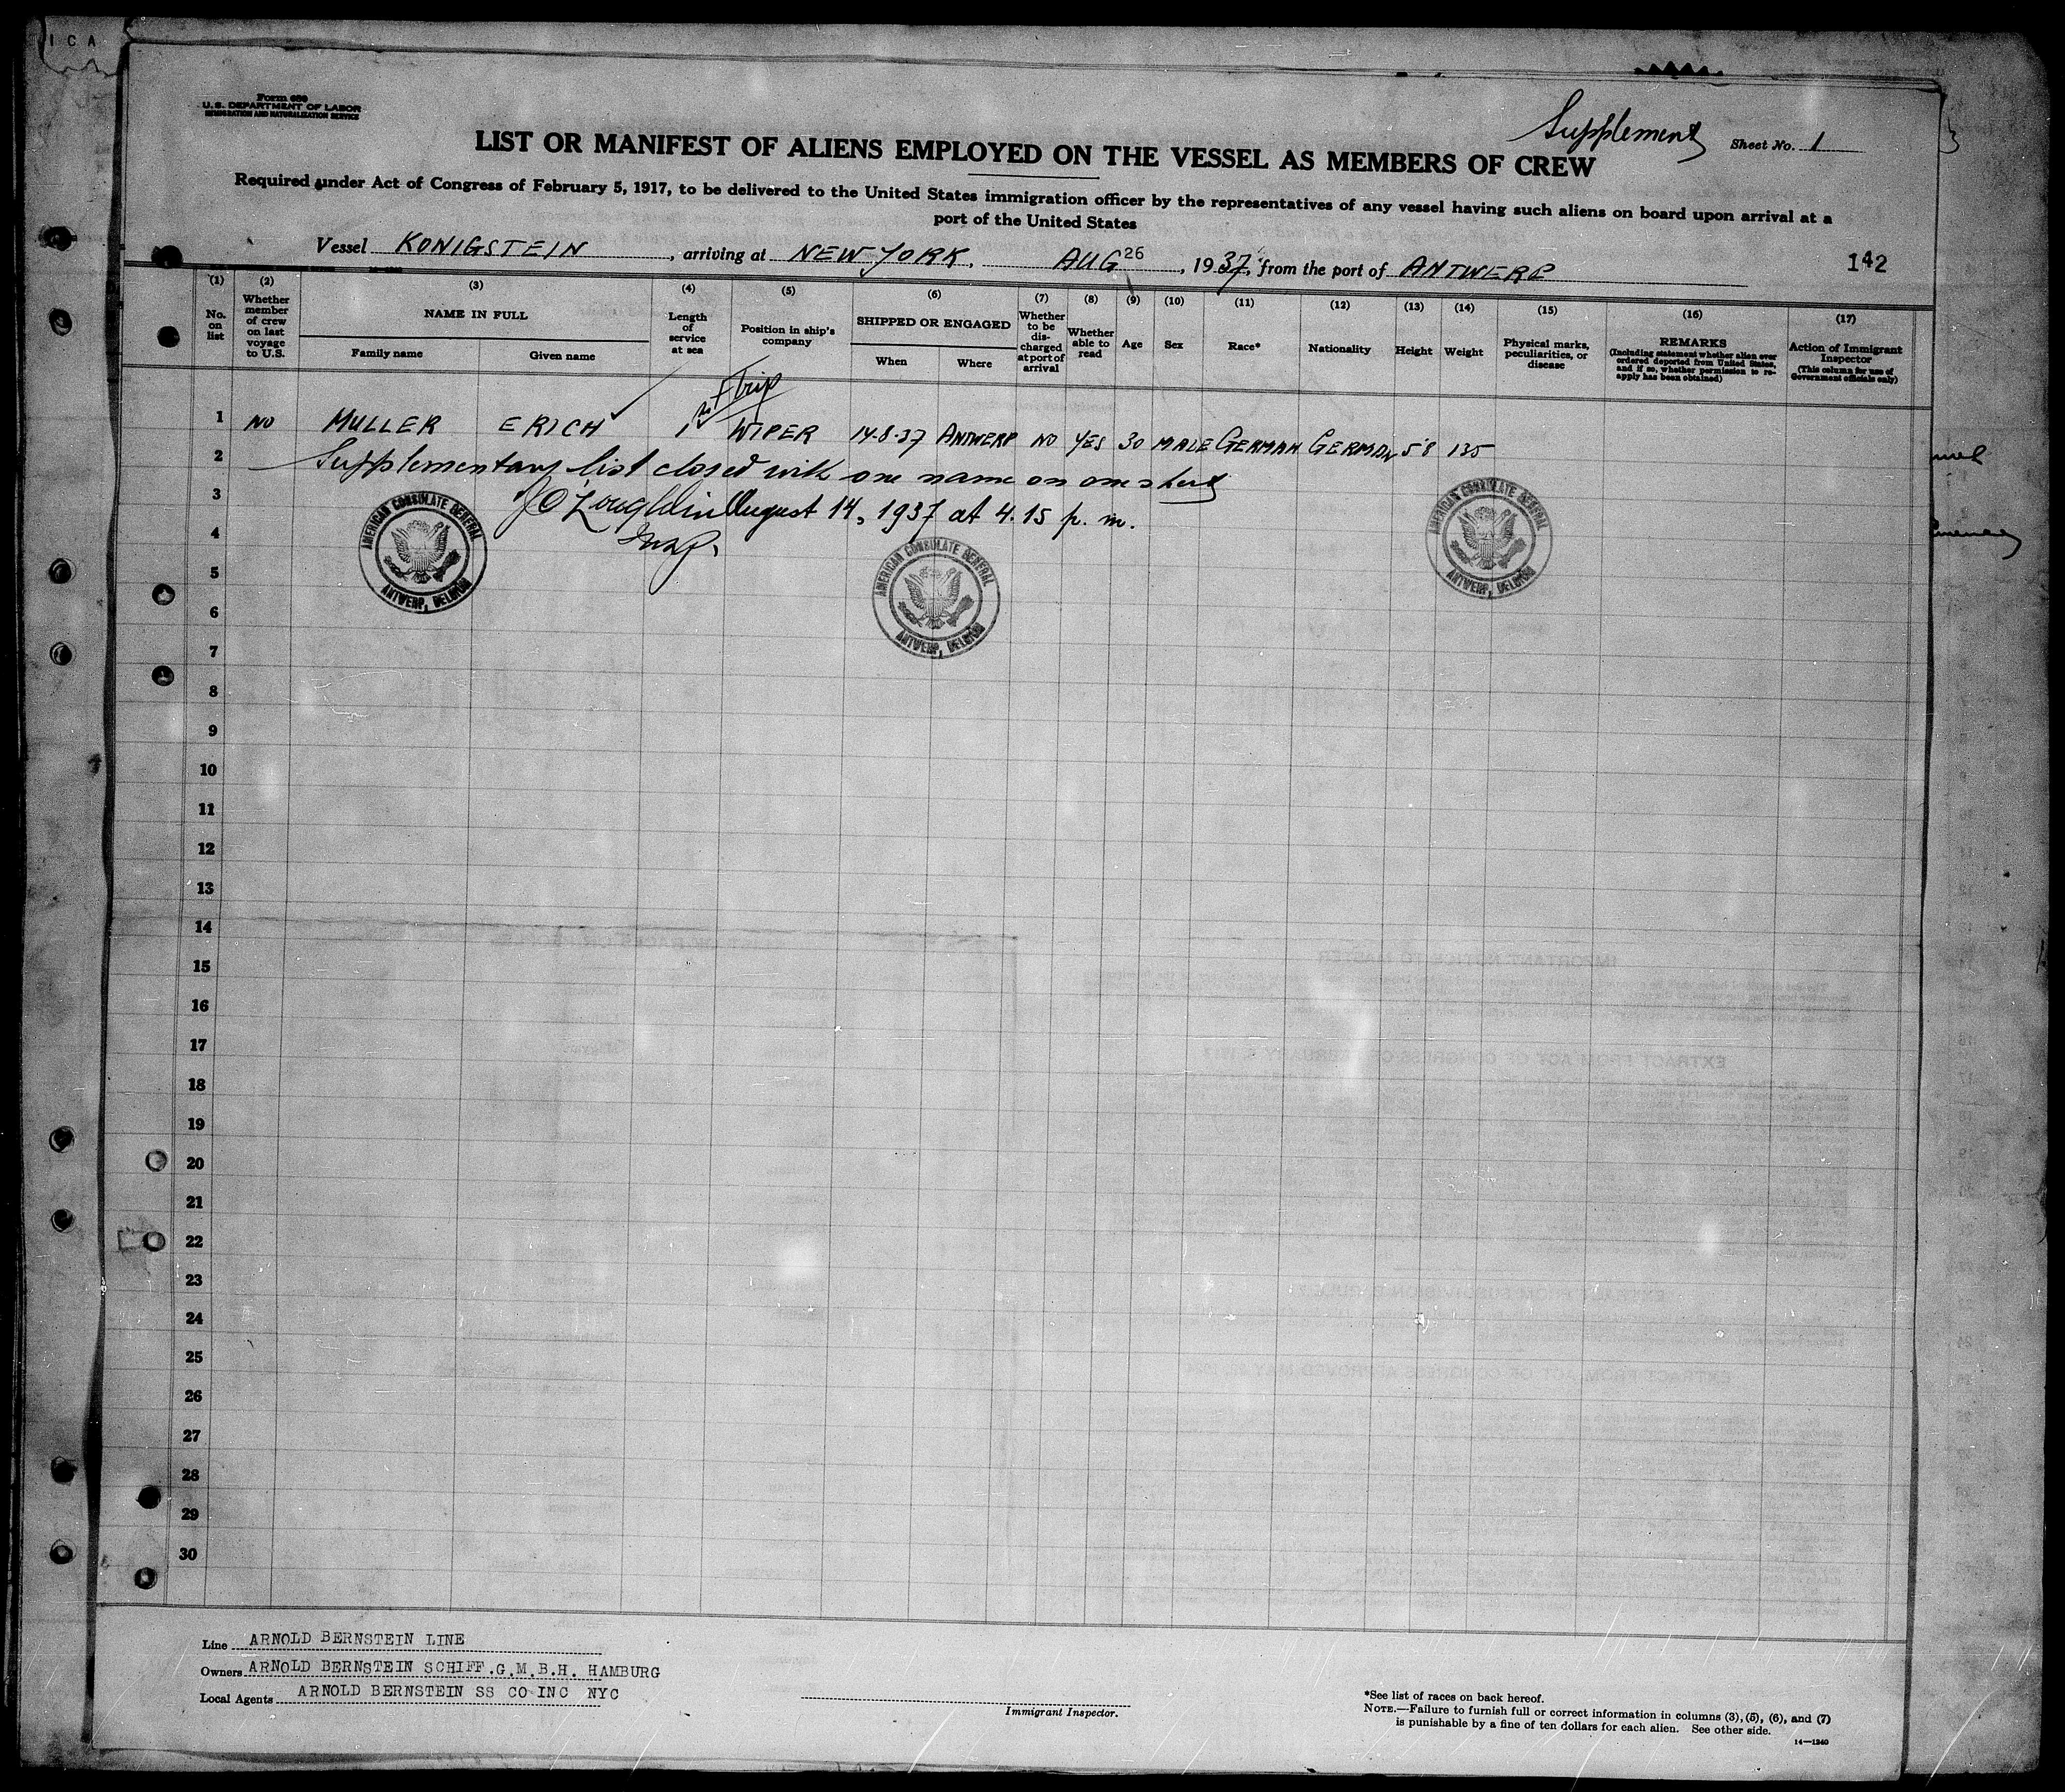 I C A
Form 680
U. S. DEPARTMENT OF LABOR
IMMIGRATION AND NATURALIZATION SERVICE
Supplement
Sheet No. 1
LIST OR MANIFEST OF ALIENS EMPLOYED ON THE VESSEL AS MEMBERS OF CREW
Required under Act of Congress of February 5, 1917, to be delivered to the United States immigration officer by the representatives of any vessel having such aliens on board upon arrival at a
port of the United States
Vessel KONIGSTEIN, arriving at NEW YORK, AUG 26, 1937, from the port of ANTWERP
142
(1) No. on list
(2) Whether member of crew on last voyage to U.S.
(3) NAME IN FULL
Family name Given name
(4) Length of service at sea
(5) Position in ship's company
(6) SHIPPED OR ENGAGED
When Where
(7) Whether to be discharged at port of arrival
(8) Whether able to read
(9) Age
(10) Sex
(11) Race*
(12) Nationality
(13) Height
(14) Weight
(15) Physical marks, peculiarities, or disease
(16) REMARKS
(Including statement whether alien ever ordered deported from United States, and if so, whether permission to reapply has been obtained)
(17) Action of Immigrant Inspector
(This column for use of Government officials only)
Trip
1 NO MULLER ERICH 1 WIPER 14-8-37 ANTWERP NO YES 30 MALE GERMAN GERMAN 5'8 135
2 Supplementary list closed with one name on one sheet
3 J O'Loughlin August 14, 1937 at 4.15 p. m.
4
AMERICAN CONSULATE GENERAL
ANTWERP, BELGIUM
AMERICAN CONSULATE GENERAL
ANTWERP, BELGIUM
AMERICAN CONSULATE GENERAL
ANTWERP, BELGIUM
5
6
7
8
9
10
11
12
13
14
15
16
17
18
19
20
21
22
23
24
25
26
27
28
29
30
Line ARNOLD BERNSTEIN LINE
Owners ARNOLD BERNSTEIN SCHIFF.G.M.B.H. HAMBURG
Local Agents ARNOLD BERNSTEIN SS CO INC NYC
Immigrant Inspector.
*See list of races on back hereof.
NOTE.—Failure to furnish full or correct information in columns (3), (5), (6), and (7)
is punishable by a fine of ten dollars for each alien. See other side.
14—1240